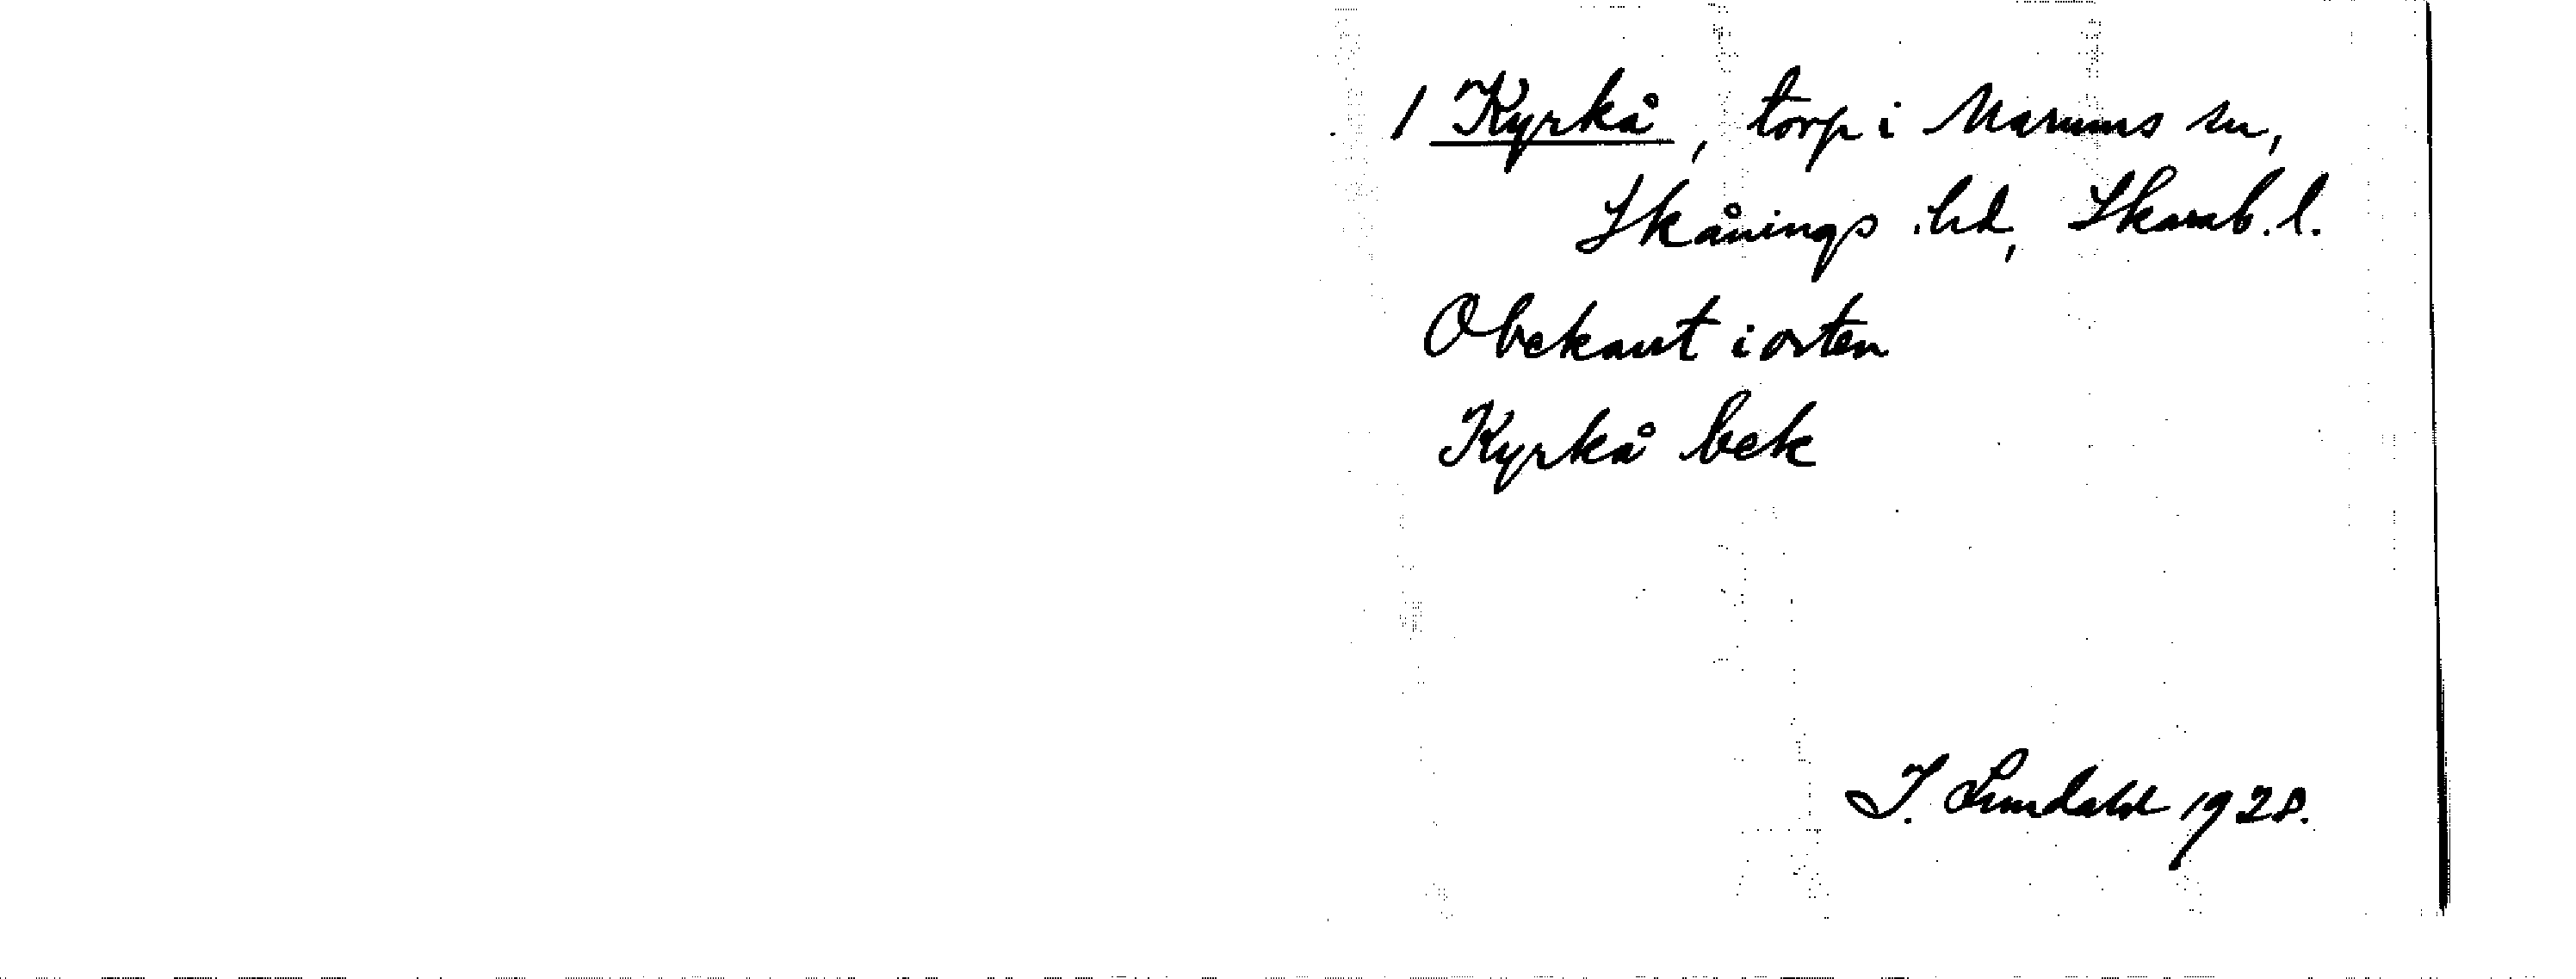 / Kyrkå, torp i Marums sn,
Skånings hd, Skarab. l.
Obekant i orten
Kyrkå bek
I. Lundahl 1928.